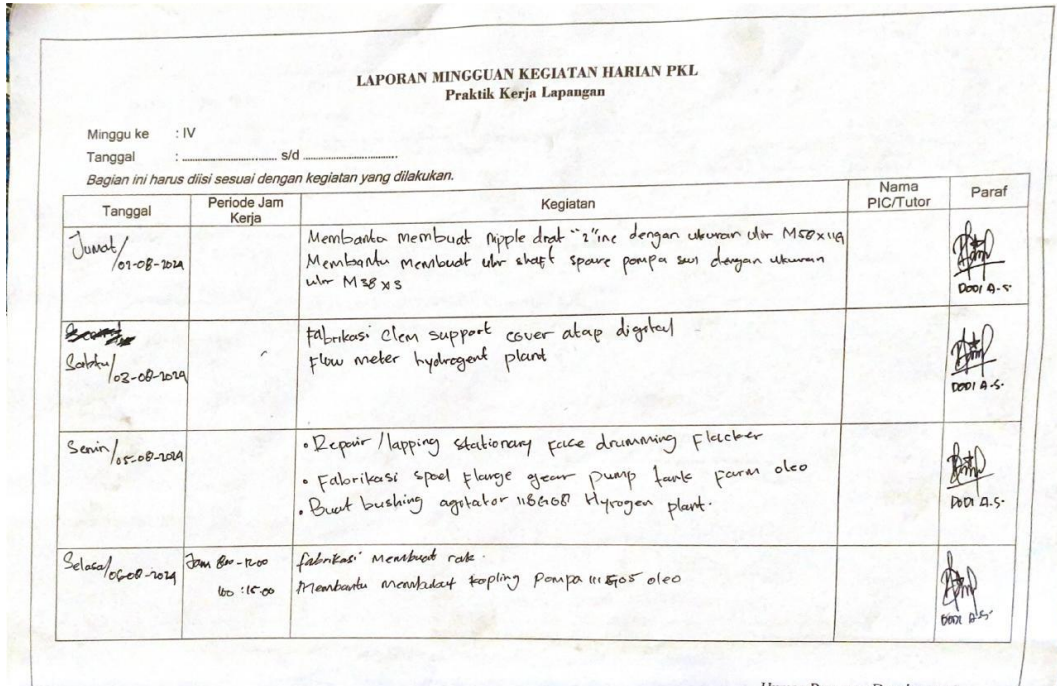 LAPORAN MINGGUAN KEGIATAN HARIAN PKL
Praktik Kerja Lapangan
Minggu ke : IV
Tanggal : ........................... s/d ...........................
Bagian ini harus diisi sesuai dengan kegiatan yang dilakukan.
Tanggal Periode Jam Kerja Kegiatan Nama PIC/Tutor Paraf
Jumat/
Membantu membuat nipple drat "2" inc dengan ukuran ulir
Membantu membuat ulir shaft spare pompa sun dengan ukuran
ulir M38 x3
DODI A.S.
Sabtu/03-08-2024
Fabrikasi Clem support cover atap digital
Flow meter hydrogent plant
DODI A.S.
Senin/05-08-2024
• Repair/lapping stationary face drumming Flacker
• Fabrikasi spool flange gear pump tank Farm oleo
• Buat bushing agitator Hyrogen plant.
DODI A.S.
Selasa/06-08-2024 Jam
fabrikasi Membuat rak.
Membantu kopling Pompa oleo
DODI A.S.